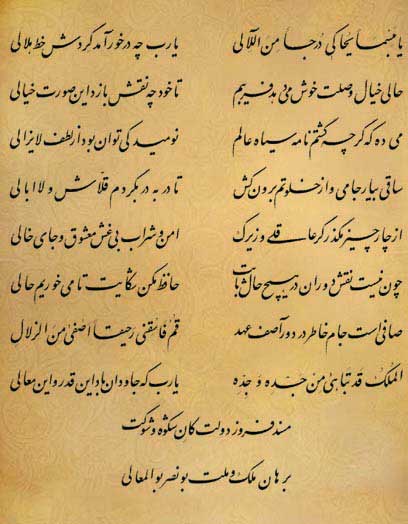 یا مبسما یحاکی درجا من اللآلی یارب چه درخور آمد گردش خط هلالی
حالی خیال وصلت خوش می‌دهد فریبم تا خود چه نقش بازد این صورت خیالی
می ده که گرچه گشتم نامه سیاه عالم نومید کی توان بود از لطف لایزالی
ساقی بیار جامی و از خلوتم برون کش تا در به در بگردم قلاش و لاابالی
از چار چیز مگذر گر عاقلی و زیرک امن و شراب بی‌غش معشوق و جای خالی
چون نیست نقش دوران در هیچ حال ثابت حافظ مکن شکایت تا می خوریم حالی
صافی است جام خاطر در دور آصف عهد قم فاسقنی رحیقا اصفی من الزلال
الملک قد تباهی من جده و جده یارب که جاودان باد این قدر و این معالی
مسند فروز دولت کان شکوه و شوکت
برهان ملک و ملت بونصر بوالمعالی